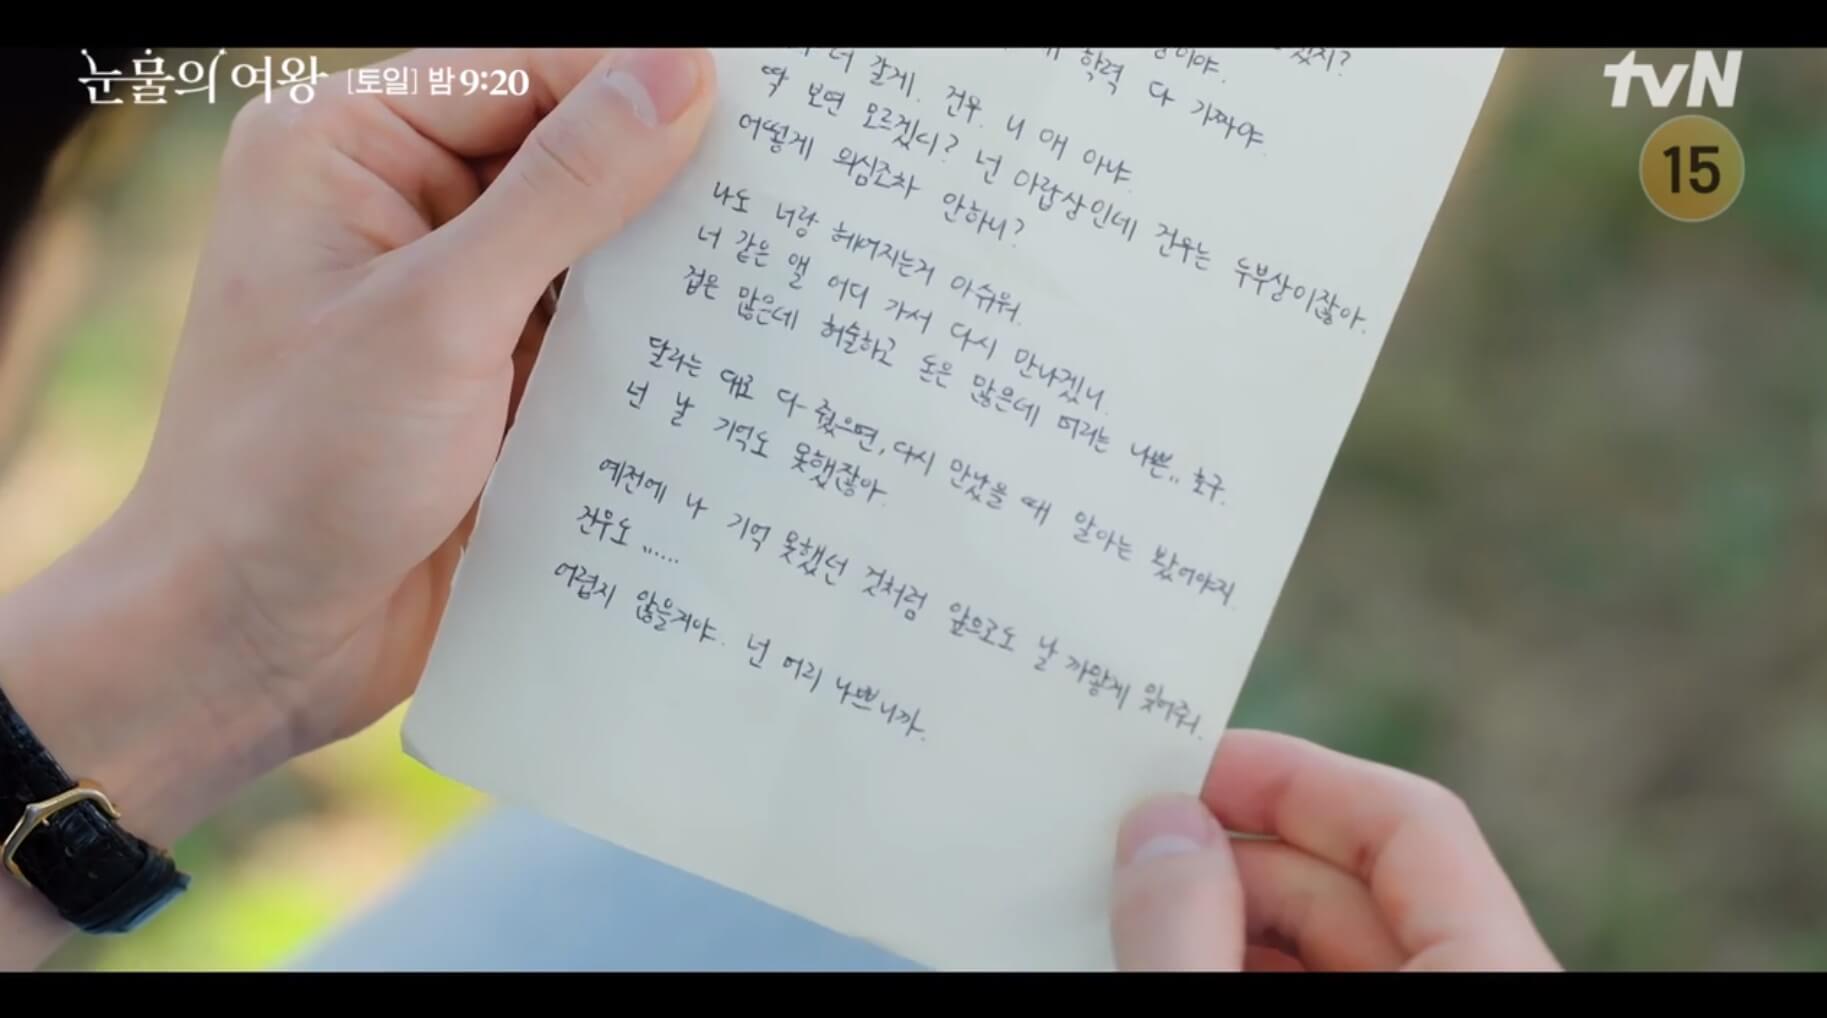 눈물의 여왕 [토일] 밤 9:20
tvN
15
있지?
학력 다 가짜야.
갈게. 건우. 니 애 아냐.
딱 보면 모르겠니? 넌 아랍상인데 건우는 두부상이잖아.
어떻게 의심조차 안하니?
나도 너랑 헤어지는거 아쉬워.
너 같은 앨 어디 가서 다시 만나겠니.
겁은 많은데 허술하고 돈은 많은데 머리는 나쁜.. 호구.
달라는 대로 다 줬으면, 다시 만났을 때 알아는 봤어야지.
넌 날 기억도 못했잖아.
예전에 나 기억 못했던 것처럼 앞으로도 날 까맣게 잊어줘.
건우도 ......
어렵지 않을거야. 넌 머리 나쁘니까.